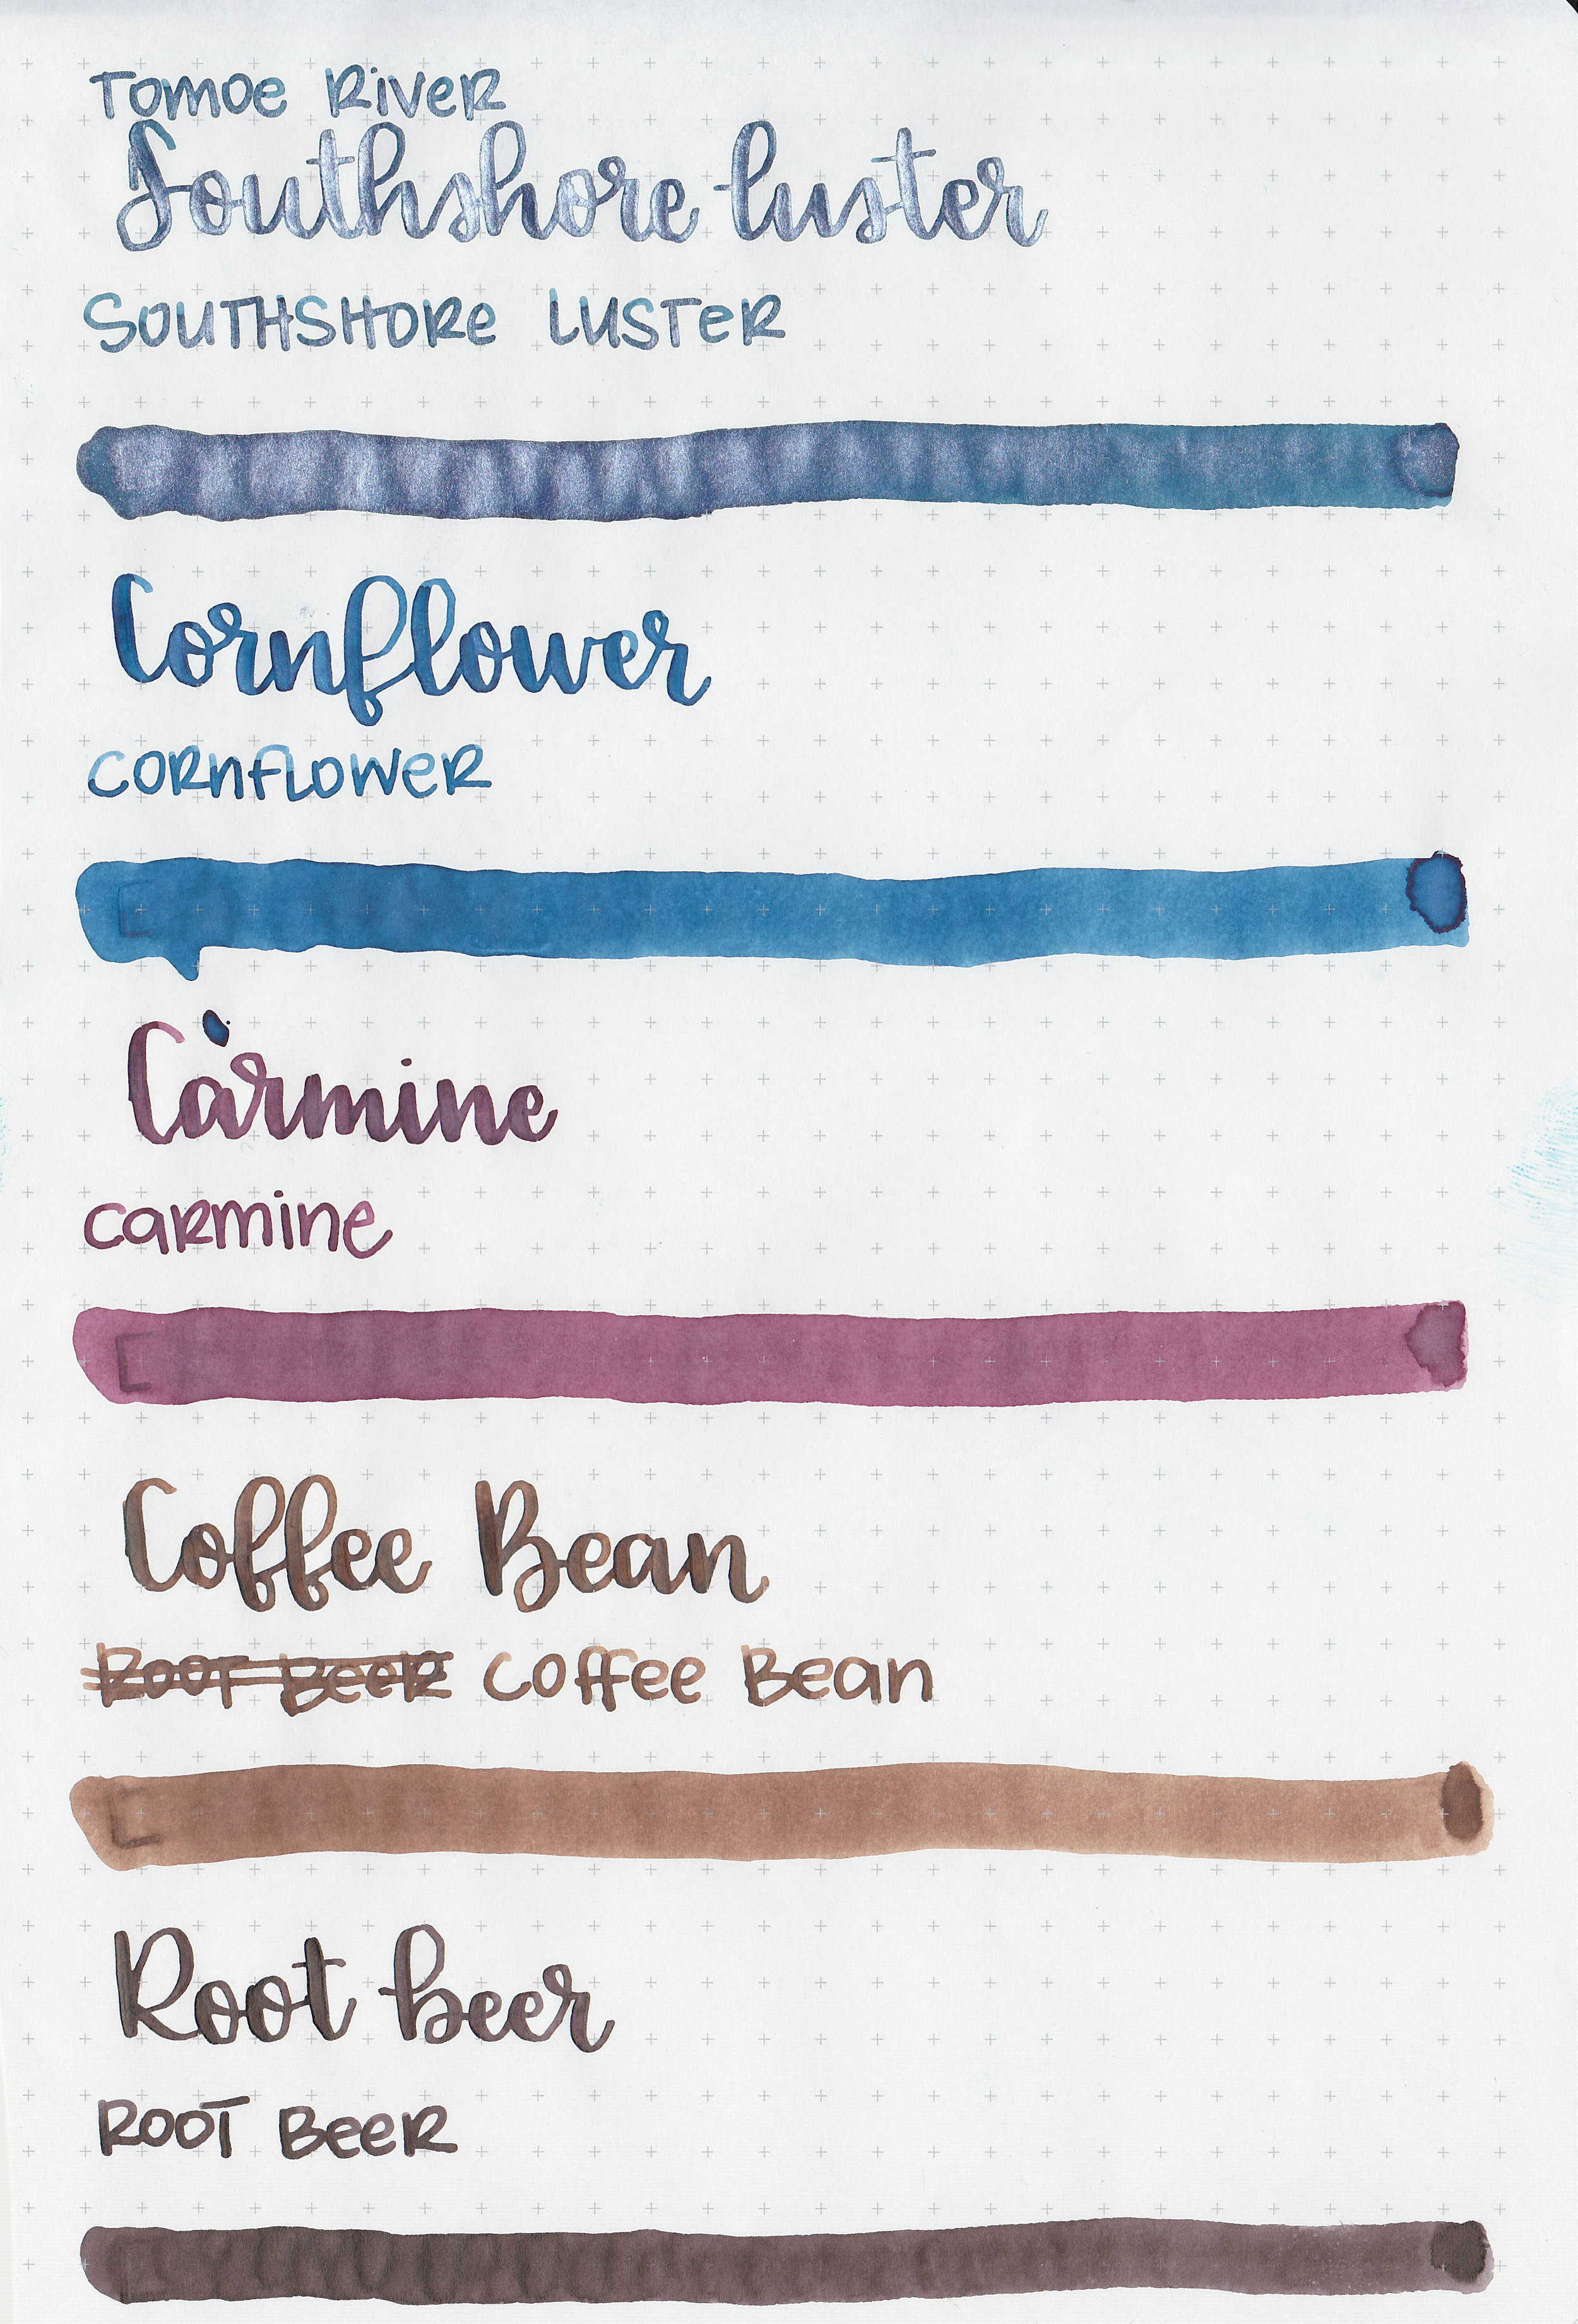 Tomoe River
Southshore luster
Southshore Luster
Cornflower
Cornflower
Carmine
Carmine
Coffee Bean
Root Beer Coffee Bean
Root beer
Root Beer